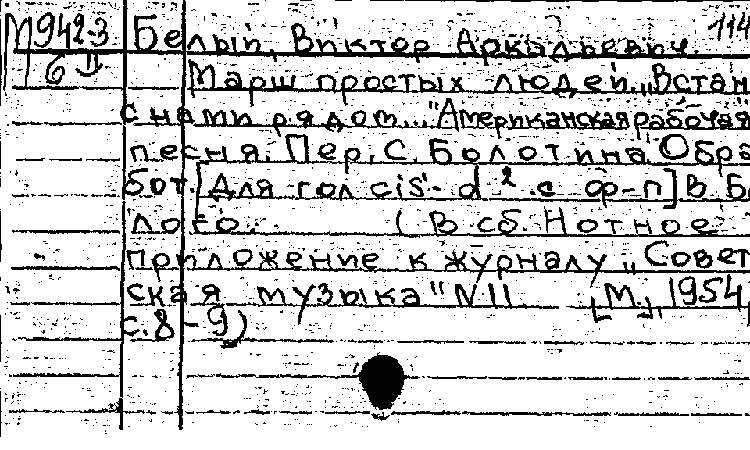 М942-3 Белый, Виктор Аркадьевич. 114
6 II Марш простых людей. „Встан
с нами рядом..." Американская рабочая
песня. Пер. С. Болотина. Обра
бот. [Для гол cis¹- d² с ф-п] В. Бе
лого. (В сб. Нотное
приложение к журналу „Совет
ская музыка" N 11 [М.], 1954,
с. 8-9)